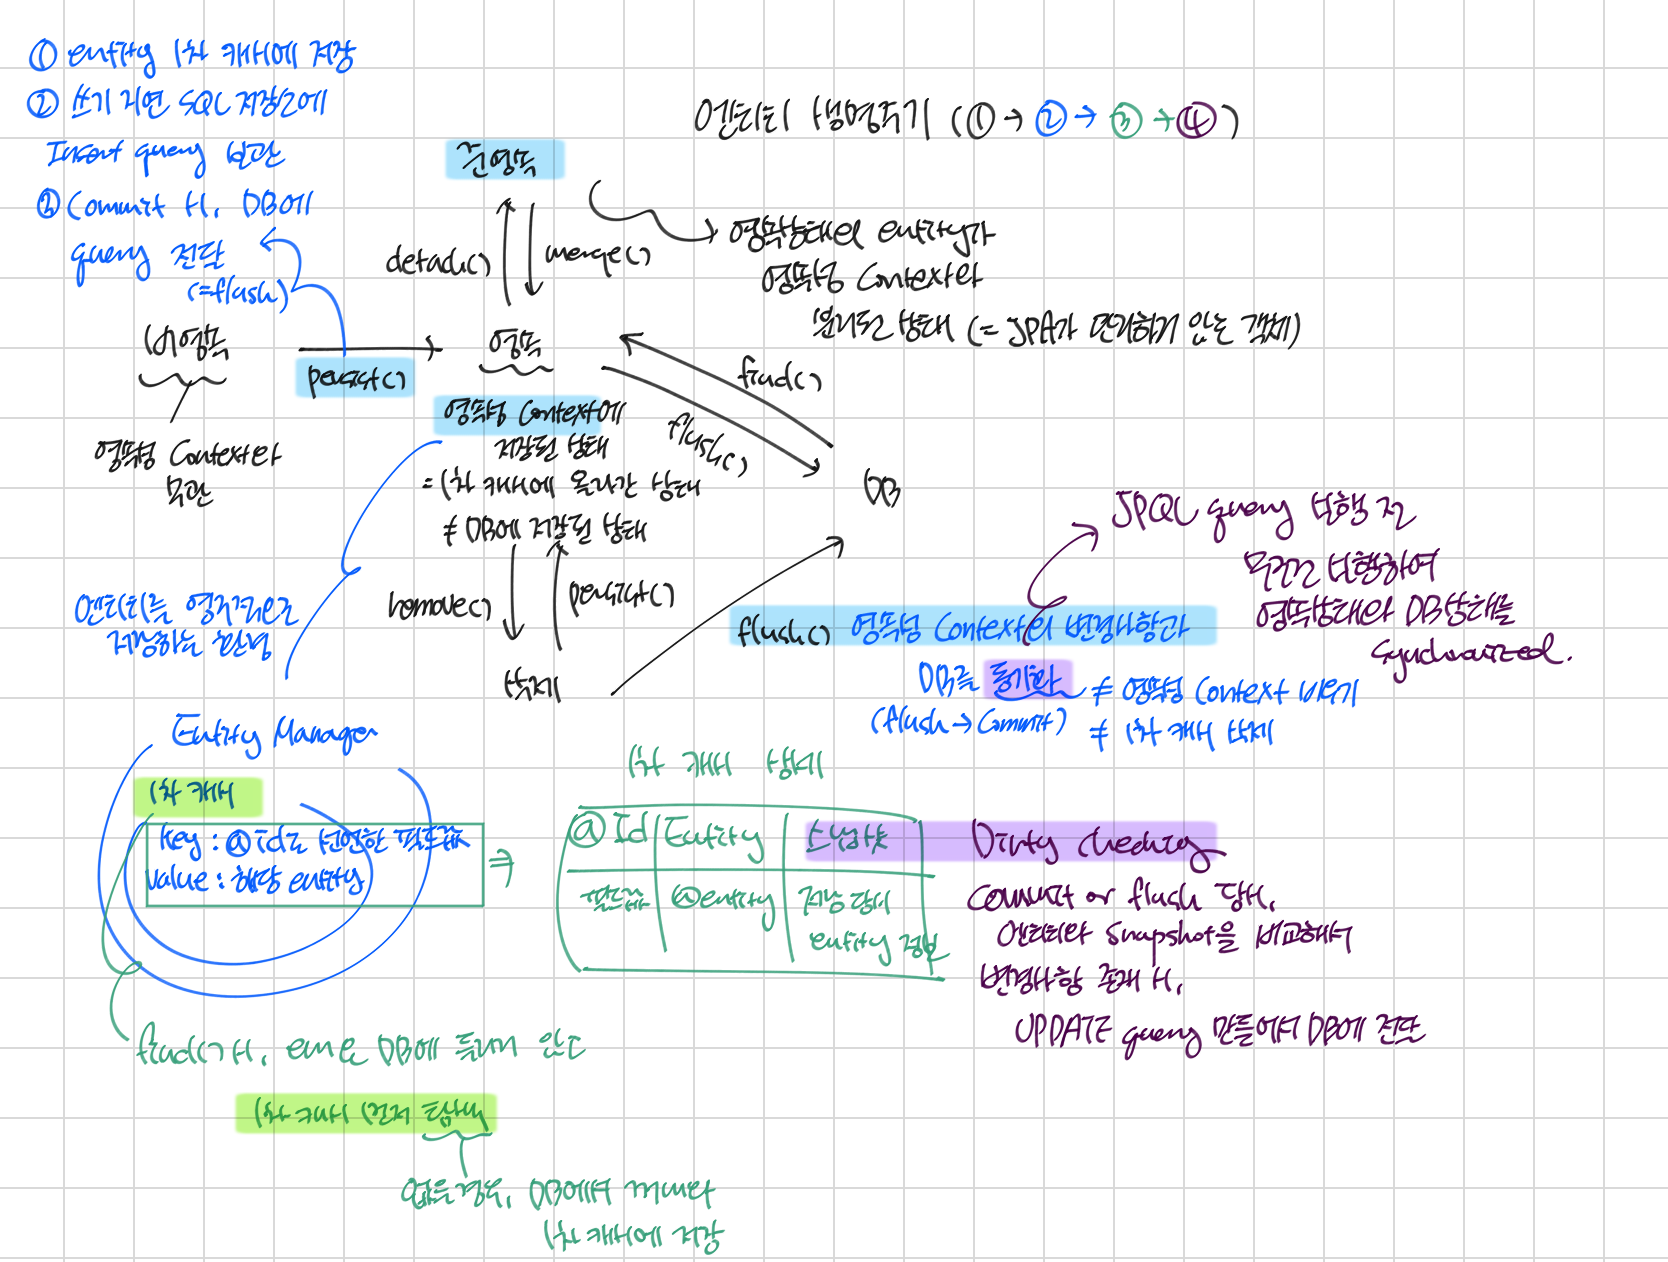 ① entity 1차 캐시에 저장
② 쓰기 지연 SQL 저장소에
Insert query 보관
③ Commit 시, DB에
query 전달
(=flush)
엔티티 생명주기 (①→②→③→④)
준영속
detach()
merge()
영속상태의 entity가
영속성 Context와
분리된 상태 (= JPA가 관리하지 않는 객체)
비영속
persist()
영속
find()
flush()
DB
영속성 Context와
무관
영속성 Context에
저장된 상태
= 1차 캐시에 올라간 상태
≠ DB에 저장된 상태
remove()
persist()
삭제
엔티티를 영구적으로
저장하는 환경
JPQL query 실행 전
무조건 실행하여
영속상태와 DB상태를
Synchronized.
flush() 영속성 Context의 변경사항과
DB를 동기화 ≠ 영속성 Context 비우기
(flush → Commit) ≠ 1차 캐시 삭제
Entity Manager
1차 캐시
key : @id로 선언한 필드값
value : 해당 entity
⇒
1차 캐시 상세
@Id Entity 스냅샷
필드값 @entity 저장 당시
entity 정보
Dirty checking
commit or flush 당시,
엔티티와 Snapshot을 비교해서
변경사항 존재 시,
UPDATE query 만들어서 DB에 전달
find() 시, em은 DB에 들르지 않고
1차 캐시 먼저 탐색
없는 경우, DB에서 꺼내와
1차 캐시에 저장